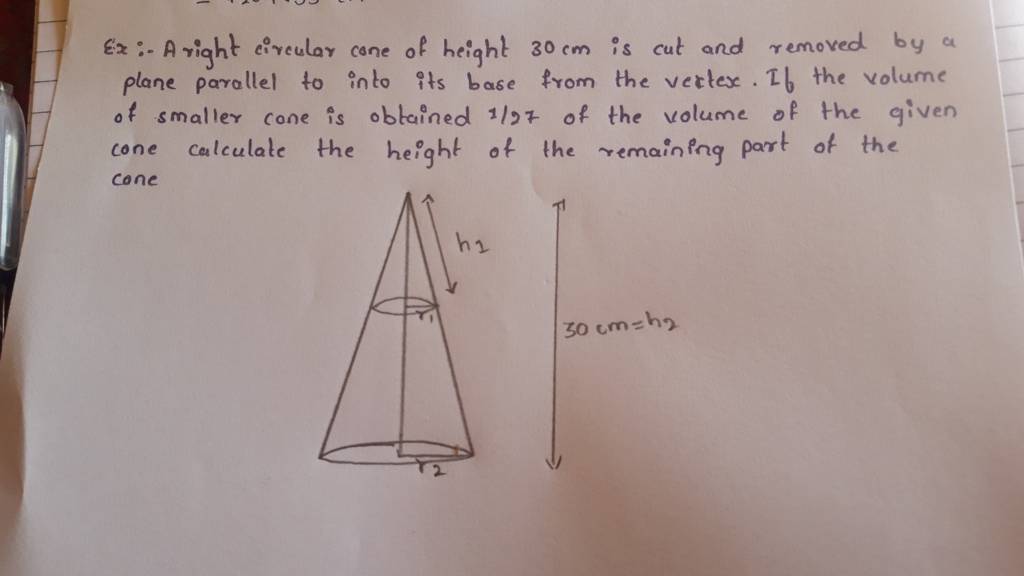 Ex :- A right circular cone of height 30 cm is cut and removed by a
plane parallel to into its base from the vertex. If the volume
of smaller cone is obtained 1/27 of the volume of the given
cone calculate the height of the remaining part of the
cone
h1
r1
30 cm = h2
r2